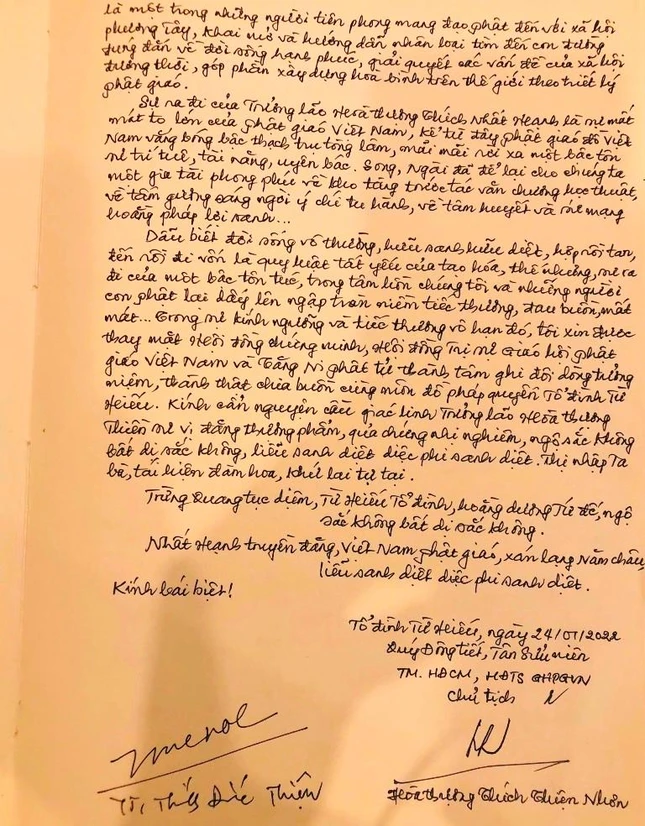 là một trong những người tiên phong mang đạo phật đến với xã hội
phương Tây, khai mở và hướng dẫn nhân loại tìm đến con đường
đúng đắn về đời sống hạnh phúc, giải quyết các vấn đề của xã hội
đương thời, góp phần xây dựng hòa bình trên thế giới theo triết lý
phật giáo.
Sự ra đi của Trưởng lão Hòa thượng Thích Nhất Hạnh là sự mất
mát to lớn của phật giáo Việt Nam, kể từ đây phật giáo đồ Việt
Nam vắng bóng bậc thạch trụ tòng lâm, mãi mãi rời xa một bậc tôn
sư trí tuệ, tài năng, uyên bác. Song, Ngài đã để lại cho chúng ta
một gia tài phong phúc về kho tàng trước tác văn chương học thuật,
về tấm gương sáng ngời ý chí tu hành, về tâm huyết và sứ mạng
hoằng pháp lợi sanh...
Dẫu biết đời sống vô thường, hữu sanh hữu diệt, hợp rồi tan,
đến rồi đi vốn là quy luật tất yếu của tạo hóa, thế nhưng, sự ra
đi của một bậc tôn túc, trong tâm hồn chúng tôi và những người
con phật lại dấy lên ngập tràn niềm tiếc thương, đau buồn, mất
mát... Trong sự kính ngưỡng và tiếc thương vô hạn đó, tôi xin được
thay mặt Hội đồng chứng minh, Hội đồng Trị sự Giáo hội phật
giáo Việt Nam và Tăng Ni phật tử thành tâm ghi đôi dòng tưởng
niệm, thành thật chia buồn cùng môn đồ pháp quyến Tổ đình Từ
Hiếu. Kính cẩn nguyện cầu giác linh Trưởng lão Hòa thượng
Thiền sư vị đăng thượng phẩm, quả chứng nhi nghiêm, ngộ sắc không
bất dị sắc không, liễu sanh diệt diệc phi sanh diệt. Thị nhập Ta
bà, tái hiện đàm hoa, khứ lai tự tại.
Trùng Quang tục diệm, Từ Hiếu Tổ đình, hoằng dương Tứ đế, ngộ
sắc không bất dị sắc không.
Nhất Hạnh truyền đăng, Việt Nam phật giáo, xán lạng năm châu,
liễu sanh diệt diệc phi sanh diệt.
Kính bái biệt!
Tổ đình Từ Hiếu, ngày 24/01/2022
Quý Đông tiết, Tân Sửu niên
TM. HĐCM, HĐTS GHPGVN
Chủ tịch
Hòa thượng Thích Thiện Nhơn
Thích Đức Thiện